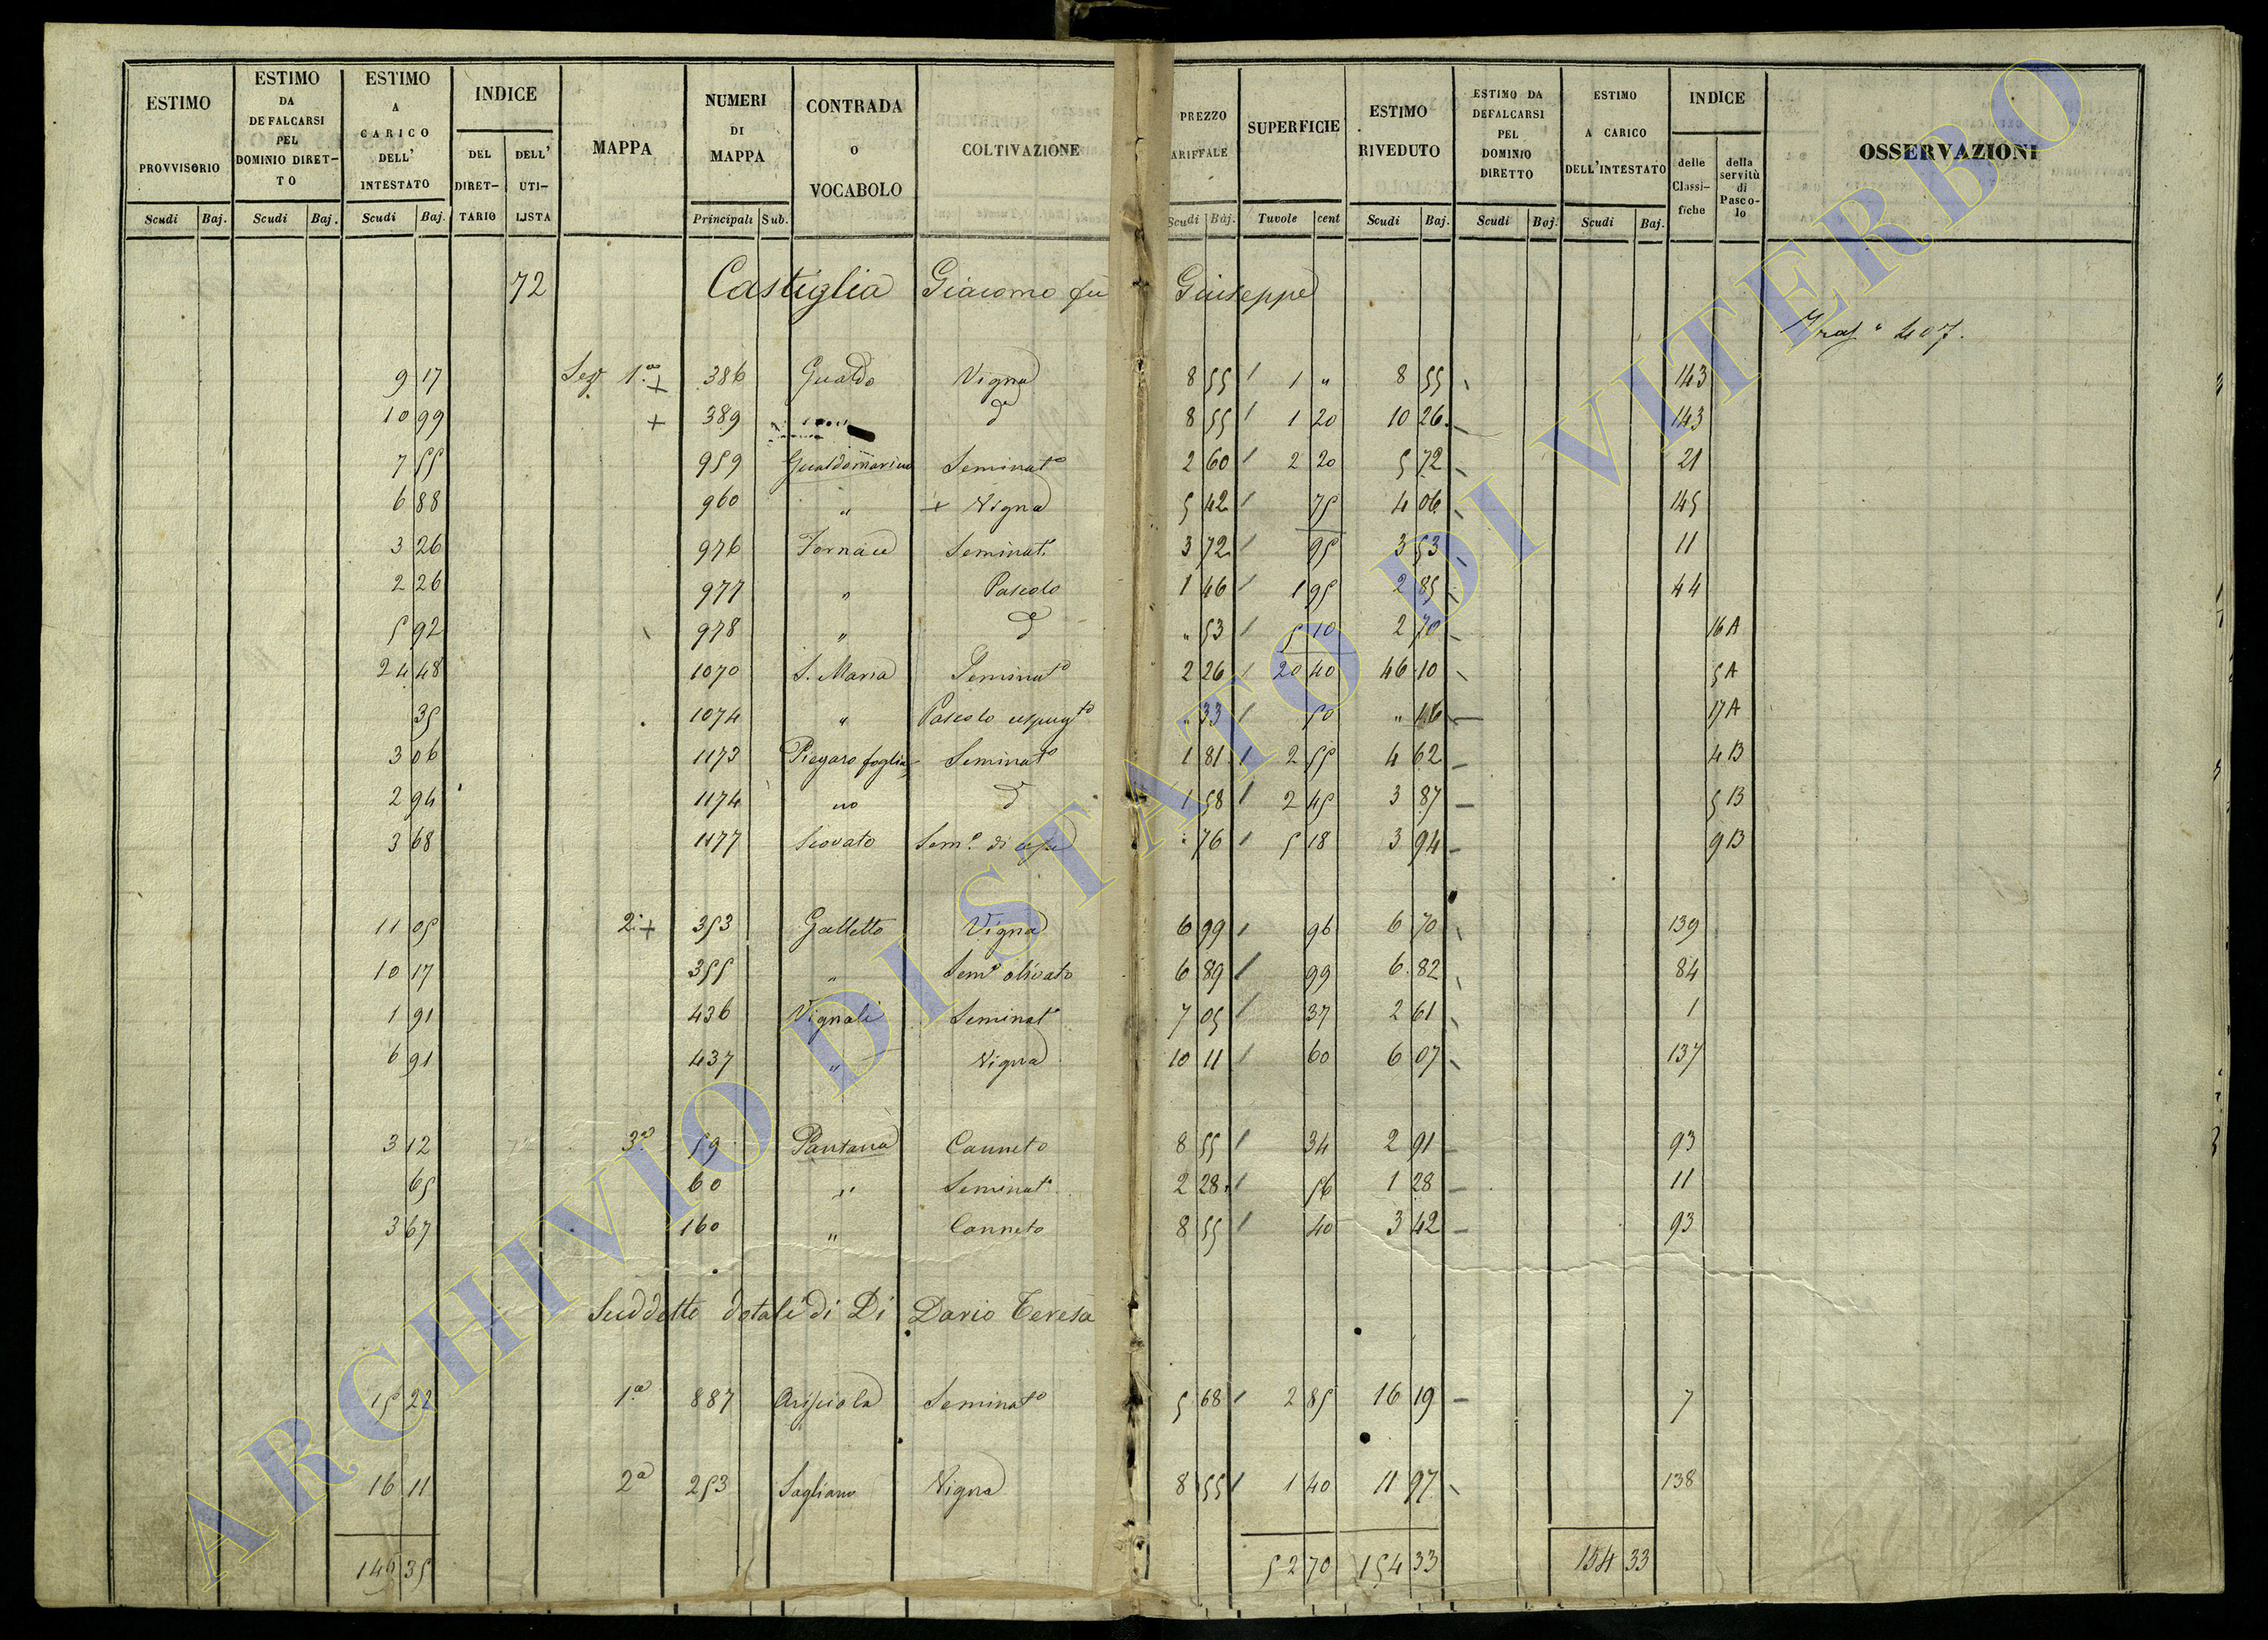 ESTIMO PROVVISORIO Scudi Baj.
ESTIMO DA DEFALCARSI PEL DOMINIO DIRET- TO Scudi Baj.
ESTIMO A CARICO DELL' INTESTATO Scudi Baj.
INDICE DEL DIRET- TARIO DELL' UTI- LISTA
MAPPA
NUMERI DI MAPPA Principali Sub.
CONTRADA O VOCABOLO
COLTIVAZIONE
PREZZO ARIFFALE Scudi Baj.
SUPERFICIE Tavole cent
ESTIMO RIVEDUTO Scudi Baj.
ESTIMO DA DEFALCARSI PEL DOMINIO DIRETTO Scudi Baj.
ESTIMO A CARICO DELL'INTESTATO Scudi Baj.
INDICE delle Classi- fiche della servitù di Pasco- lo
OSSERVAZIONI
72 Castiglia Giacomo fu Giuseppe
407.
9 17 Sez. 1.a + 386 Gualdo Vigna 8 55 1 " 8 55 143
10 99 + 389 do 8 55 1 20 10 26 143
7 55 959 Gualdomarino Seminato 2 60 2 20 5 72 21
6 88 960 " + Vigna 5 42 75 4 06 145
3 26 976 Fornace Seminat. 3 72 95 3 53 11
2 26 977 " Pascolo 1 46 1 95 2 85 44
5 92 978 " do " 53 5 10 2 70 16 A
24 48 1070 S. Maria Seminato 2 26 20 40 46 10 5 A
35 1074 " Pascolo cespugto " 33 50 " 17 A
3 06 1173 Piegaro foglia Seminato 1 81 2 55 4 62 4 B
2 94 1174 no do 1 58 2 45 3 87 5 B
3 68 1177 Scovato Sem.o di 76 5 18 3 94 9 B
11 05 2.a + 353 Galletto Vigna 6 99 96 6 70 139
10 17 355 " Sem.o olivato 6 89 99 6 82 84
1 91 436 Vignali Seminato 7 05 37 2 61 1
6 91 437 " Vigna 10 11 60 6 07 137
3 12 3.a 59 Pantana Canneto 8 55 34 2 91 93
65 60 " Seminato 2 28 56 1 28 11
3 67 160 " Canneto 8 55 40 3 42 93
Suddetto dotali di Di Dario Teresa
15 22 1.a 887 Seminato 5 68 2 85 16 19 7
16 11 2.a 253 Sagliano Vigna 8 55 1 40 11 97 138
149 35 52 70 154 33 154 33
ARCHIVIO DI STATO DI VITERBO